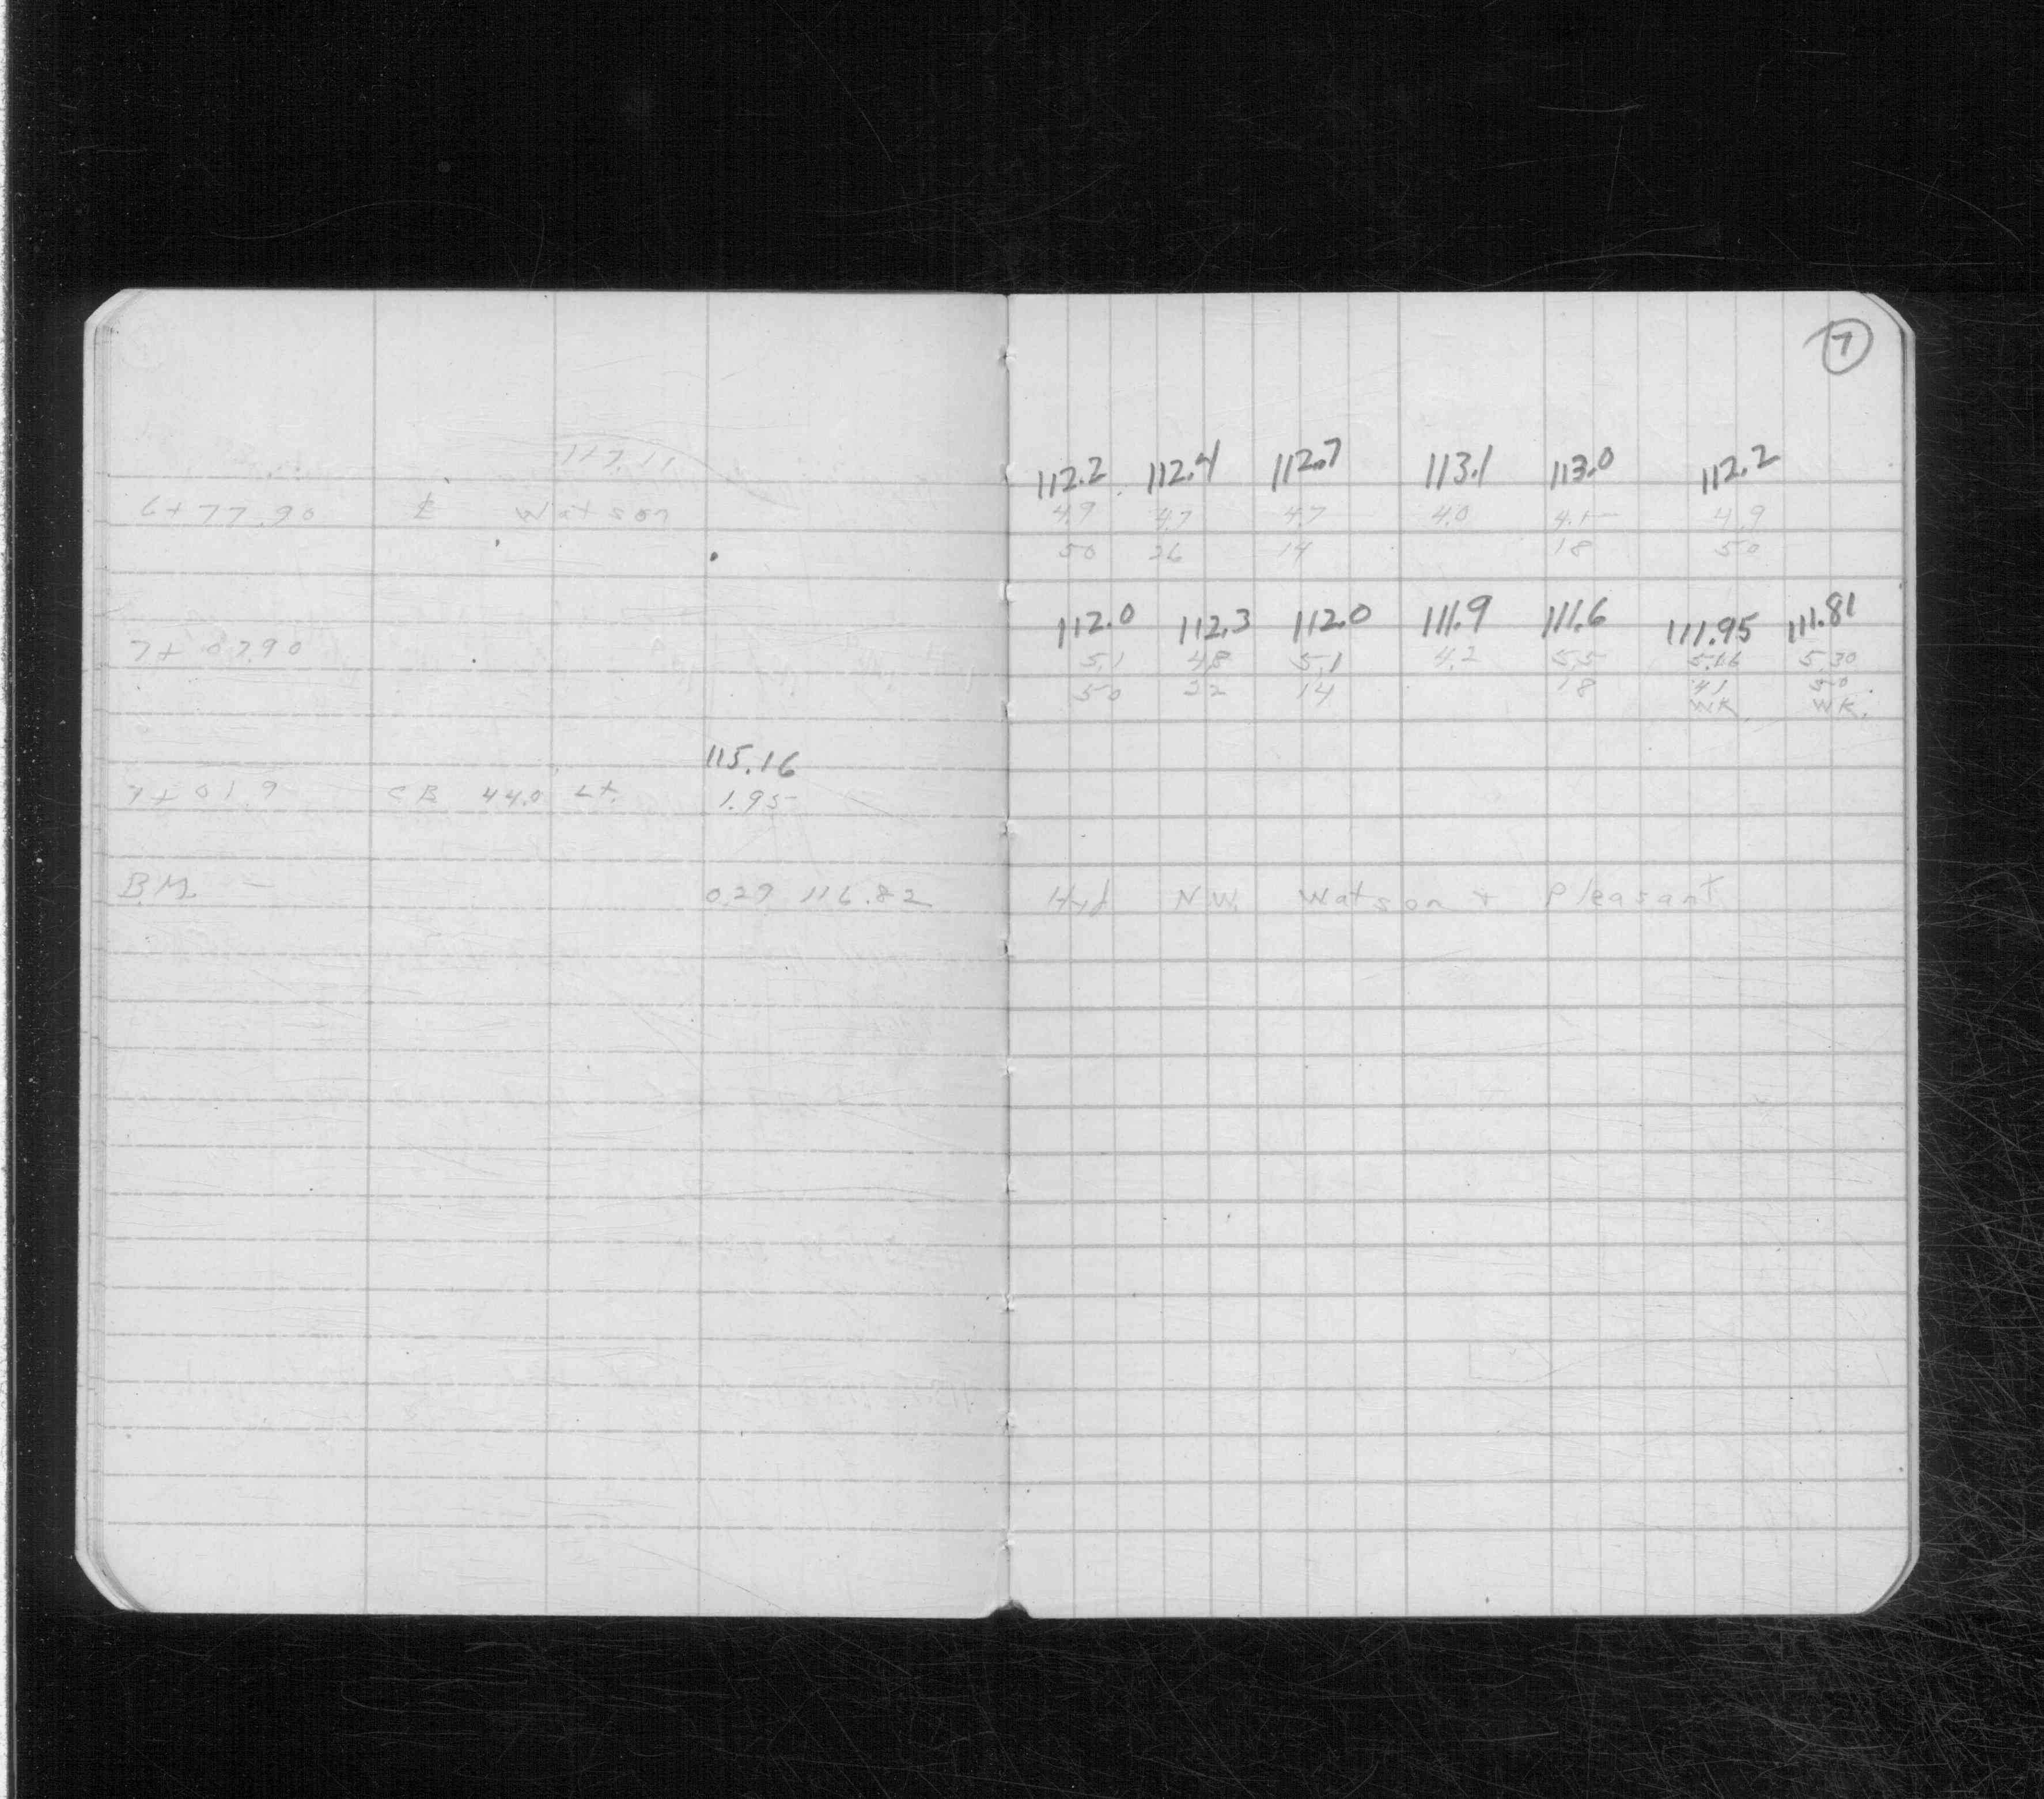 7
117.11
112.2 112.4 112.7 113.1 113.0 112.2
6+77.90 ℄ Watson 4.9 4.7 4.7 4.0 4.1 4.9
50 26 14 18 50
112.0 112.3 112.0 111.9 111.6 111.95 111.81
7+07.90 5.1 4.8 5.1 4.2 5.5 5.16 5.30
50 32 14 18 41 50
WK. WK.
115.16
7+01.9 CB 44.0 Lt. 1.95
B.M. — 0.29 116.82 Hyd N.W. Watson + Pleasant